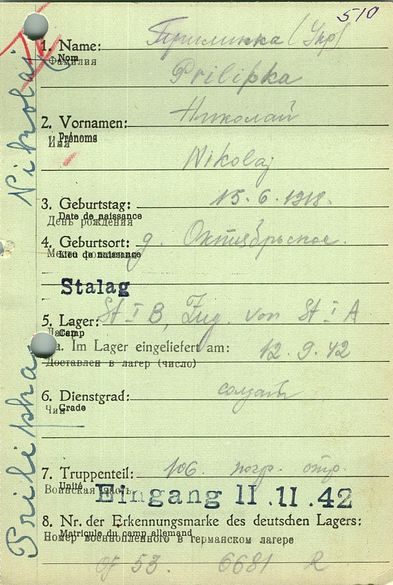 510
1. Name:
Nom
Фамилия
Прилипка (Укр)
Prilipka
2. Vornamen:
Prénoms
Имя
Николай
Nikolaj
3. Geburtstag: 15.6.1918.
Date de naissance
День рождения
4. Geburtsort: д. Октябрьское.
Lieu de naissance
Stalag
5. Lager: St I B, Zug. von St I A
Camp
a. Im Lager eingeliefert am: 12.9.42
Доставлен в лагерь (число)
6. Dienstgrad: солдат
Grade
Чин
7. Truppenteil: 106. погр. отр.
Unité
Воинская часть
Eingang 11.11.42
8. Nr. der Erkennungsmarke des deutschen Lagers:
Matricule du camp allemand
Номер военнопленного в германском лагере
53. 6681 R
Prilipka Nikolaj